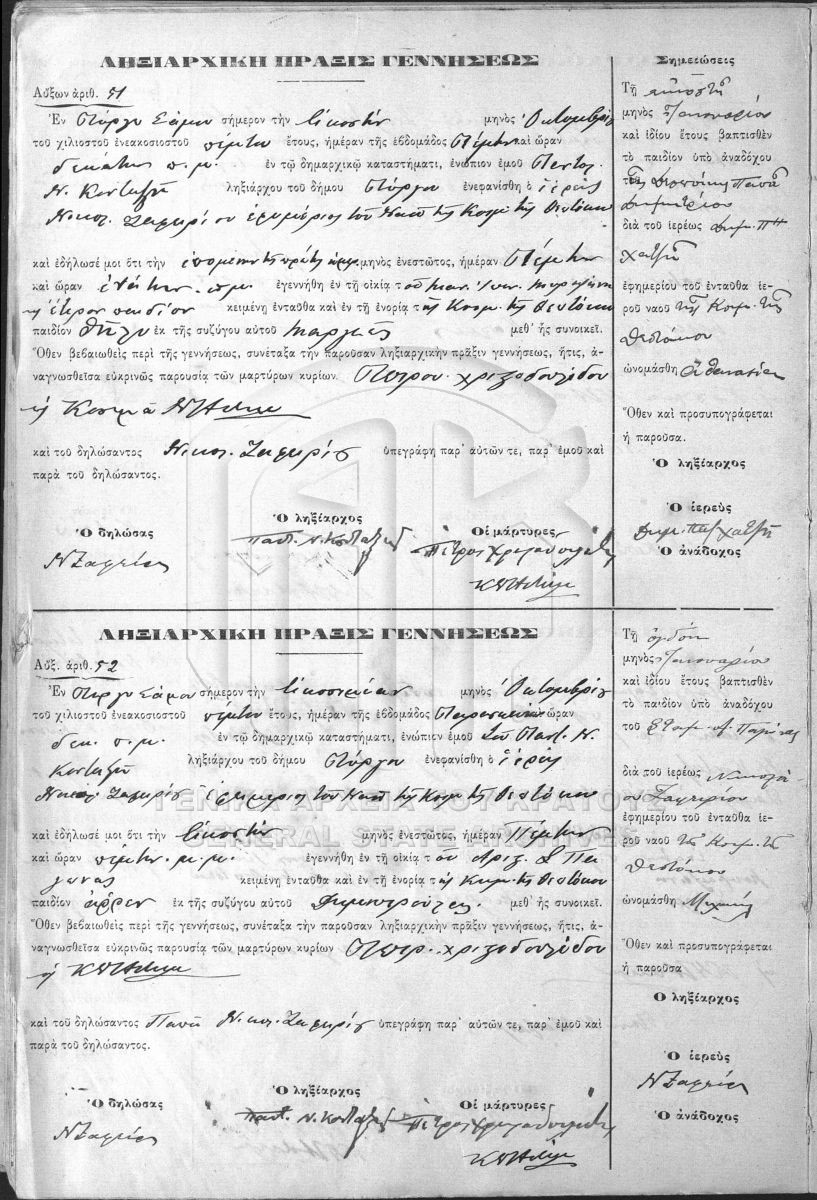 ΛΗΞΙΑΡΧΙΚΗ ΠΡΑΞΙΣ ΓΕΝΝΗΣΕΩΣ
Αὔξων ἀριθ. 51
Ἐν Πύργῳ Σάμου σήμερον τὴν εἰκοστὴν μηνὸς Ὀκτωμβρίου
τοῦ χιλιοστοῦ ἐνεακοσιοστοῦ πέμπτου ἔτους, ἡμέραν τῆς ἑβδομάδος Πέμπτην καὶ ὥραν
δεκάτην π.μ. ἐν τῷ δημαρχικῷ καταστήματι, ἐνώπιον ἐμοῦ Παντ.
Ν. Κονταξῆ ληξιάρχου τοῦ δήμου Πύργου ἐνεφανίσθη ὁ ἱερεὺς
Νικολ. Ζαφειρίου ἐφημέριος τοῦ Ναοῦ τῆς Κοιμ. τῆς Θεοτόκου
καὶ ἐδήλωσέ μοι ὅτι τὴν μηνὸς ἐνεστῶτος, ἡμέραν Πέμπτην
καὶ ὥραν ἐνάτην π.μ. ἐγεννήθη ἐν τῇ οἰκίᾳ τοῦ
ἕτερον παιδίον κειμένη ἐνταῦθα καὶ ἐν τῇ ἐνορίᾳ τῆς Κοιμ. τῆς Θεοτόκου
παιδίον θῆλυ ἐκ τῆς συζύγου αὐτοῦ μεθ᾽ ἧς συνοικεῖ.
Ὅθεν βεβαιωθεὶς περὶ τῆς γεννήσεως, συνέταξα τὴν παροῦσαν ληξιαρχικὴν πρᾶξιν γεννήσεως, ἥτις, ἀ-
ναγνωσθεῖσα εὐκρινῶς παρουσίᾳ τῶν μαρτύρων κυρίων. Πέτρου Χριζοδουλίδου
καὶ τοῦ δηλώσαντος Νικολ. Ζαφειρίου ὑπεγράφη παρ᾽ αὐτῶν τε, παρ᾽ ἐμοῦ καὶ
παρὰ τοῦ δηλώσαντος.
Ὁ δηλώσας
Ὁ ληξίαρχος
Οἱ μάρτυρες
Ν Ζαφειρίου
Παντ. Ν. Κονταξῆς
Πέτρος Χριζοδουλίδης
Σημειώσεις
Τῇ εἰκοστῇ
μηνὸς Ἰανουαρίου
καὶ ἰδίου ἔτους βαπτισθὲν
τὸ παιδίον ὑπὸ ἀναδόχου
Δημητρίου
διὰ τοῦ ἱερέως Δημ. Π
Χατζῆ
ἐφημερίου τοῦ ἐνταῦθα ἱε-
ροῦ ναοῦ τῆς Κοιμ. τῆς
Θεοτόκου
ὠνομάσθη Ἀθανασία
Ὅθεν καὶ προσυπογράφεται
ἡ παροῦσα.
Ὁ ληξίαρχος
Ὁ ἱερεὺς
Ὁ ἀνάδοχος
ΛΗΞΙΑΡΧΙΚΗ ΠΡΑΞΙΣ ΓΕΝΝΗΣΕΩΣ
Αὔξ. ἀριθ. 52
Ἐν Πύργῳ Σάμου σήμερον τὴν μηνὸς Ὀκτωμβρίου
τοῦ χιλιοστοῦ ἐνεακοσιοστοῦ πέμπτου ἔτους, ἡμέραν τῆς ἑβδομάδος Παρασκευὴν ὥραν
δεκ. π.μ. ἐν τῷ δημαρχικῷ καταστήματι, ἐνώπιον ἐμοῦ τοῦ Παντ. Ν.
Κονταξῆ ληξιάρχου τοῦ δήμου Πύργου ἐνεφανίσθη ὁ ἱερεὺς
Νικολ. Ζαφειρίου ἐφημέριος τοῦ Ναοῦ τῆς Κοιμ. τῆς Θεοτόκου
καὶ ἐδήλωσέ μοι ὅτι τὴν εἰκοστὴν μηνὸς ἐνεστῶτος, ἡμέραν Πέμπτην
καὶ ὥραν πέμπτην μ.μ. ἐγεννήθη ἐν τῇ οἰκίᾳ τοῦ
κειμένη ἐνταῦθα καὶ ἐν τῇ ἐνορίᾳ τῆς Κοιμ. τῆς Θεοτόκου
παιδίον ἄρρεν ἐκ τῆς συζύγου αὐτοῦ μεθ᾽ ἧς συνοικεῖ.
Ὅθεν βεβαιωθεὶς περὶ τῆς γεννήσεως, συνέταξα τὴν παροῦσαν ληξιαρχικὴν πρᾶξιν γεννήσεως, ἥτις, ἀ-
ναγνωσθεῖσα εὐκρινῶς παρουσίᾳ τῶν μαρτύρων κυρίων Πετρ. Χριζοδουλίδου
καὶ τοῦ δηλώσαντος Παπᾶ Νικολ. Ζαφειρίου ὑπεγράφη παρ᾽ αὐτῶν τε, παρ᾽ ἐμοῦ καὶ
παρὰ τοῦ δηλώσαντος.
Ὁ δηλώσας
Ὁ ληξίαρχος
Οἱ μάρτυρες
Ν Ζαφειρίου
Παντ. Ν. Κονταξῆς
Πέτρος Χριζοδουλίδης
Τῇ ὀγδόῃ
μηνὸς Ἰανουαρίου
καὶ ἰδίου ἔτους βαπτισθὲν
τὸ παιδίον ὑπὸ ἀναδόχου
τοῦ
διὰ τοῦ ἱερέως Νικολά-
ου Ζαφειρίου
ἐφημερίου τοῦ ἐνταῦθα ἱε-
ροῦ ναοῦ τῆς Κοιμ. τῆς
Θεοτόκου
ὠνομάσθη Μιχαὴλ
Ὅθεν καὶ προσυπογράφεται
ἡ παροῦσα
Ὁ ληξίαρχος
Ὁ ἱερεὺς
Ν Ζαφειρίου
Ὁ ἀνάδοχος
ΓΕΝΙΚΑ ΑΡΧΕΙΑ ΤΟΥ ΚΡΑΤΟΥΣ
GENERAL STATE ARCHIVES